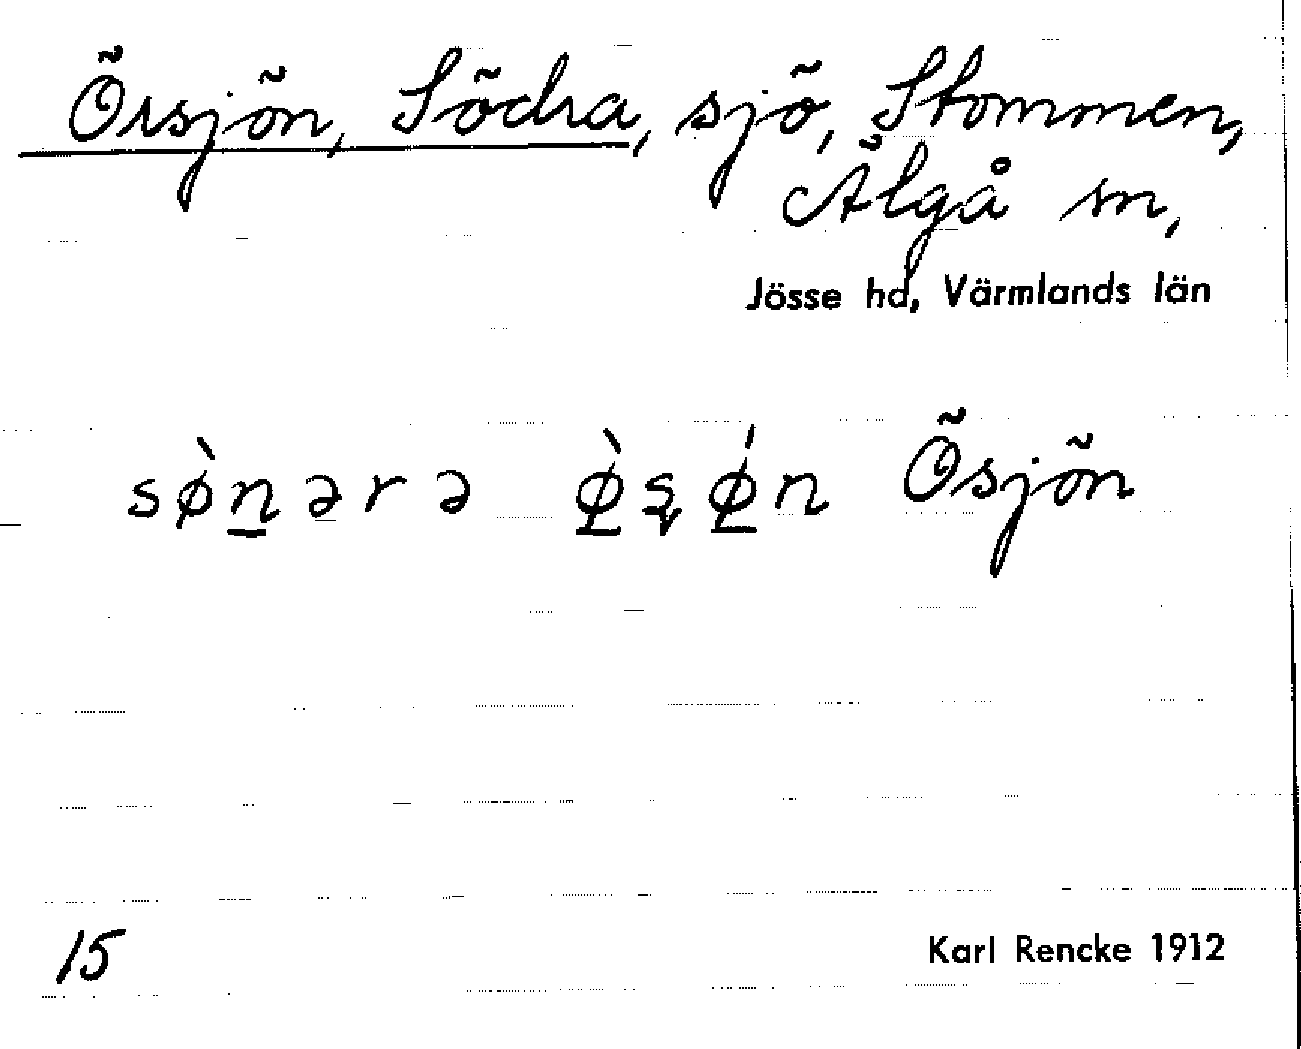 Örsjön, Södra, sjö, Stommen,
Älgå sn,
Jösse hd, Värmlands län
sø̀n̲ərə ø̲̀ʂǿ̲n Ösjön
15
Karl Rencke 1912